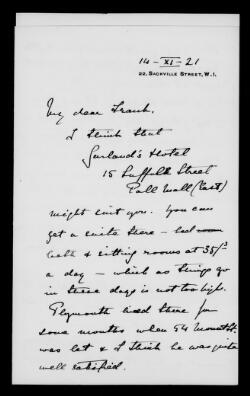 14-XI-21
22, SACKVILLE STREET, W.1.
My dear Frank.
I think that
Garland's Hotel
15 Suffolk Street
Pall Mall (East)
might suit you. You can
get a suite there – bedroom
bath & sitting rooms at 35/-
a day – which as things go
in these days is not too high.
Plymouth lived there for
some months when 54 Mount St.
was let & I think he was quite
well satisfied.